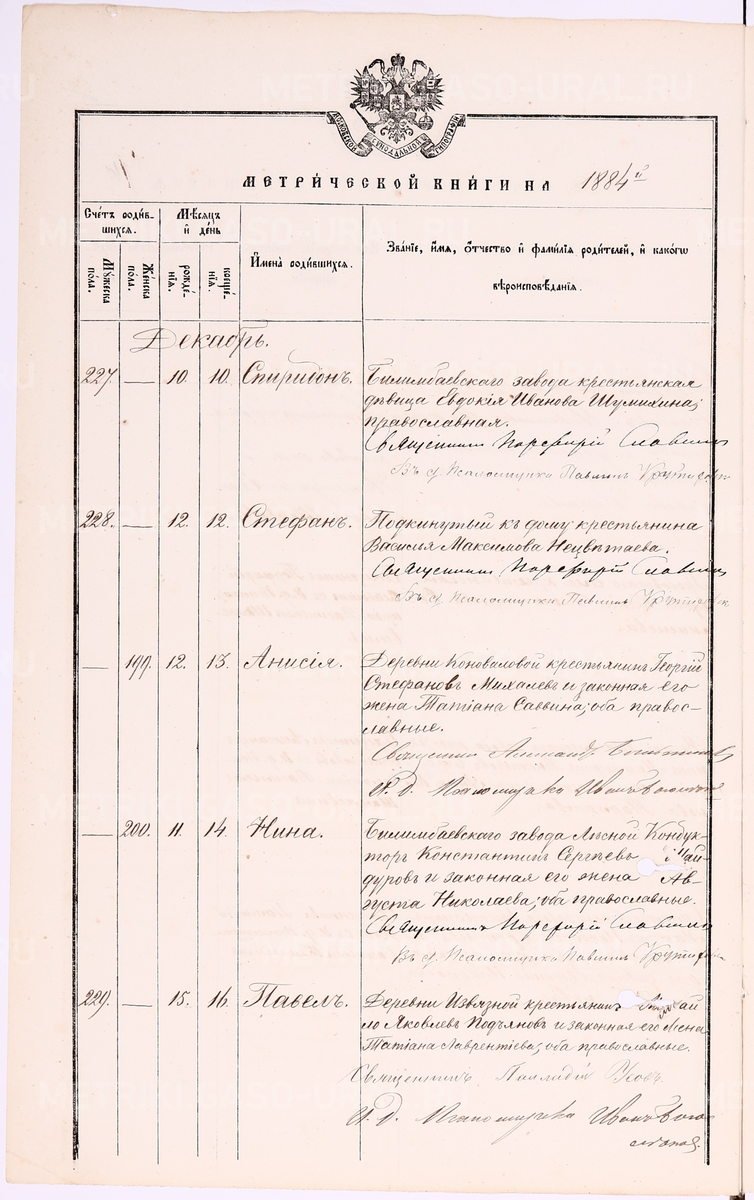 МОСКОВСКОЙ СѴНОДАЛЬНОЙ ТИПОГРАФІИ
МЕТРИ́ЧЕСКОЙ КНИ́ГИ НА 1884й
Сче́тъ роди́в-
шихся.
Му́жеска
по́ла.
Же́нска
по́ла.
Мѣ́сяцъ
и де́нь
рожде́-
нія.
креще́-
нія.
Имена̀ роди́вшихся.
Зва́ніе, и́мя, ѻ́тчество и фами́лія роди́телей, и како́гѡ
вѣроисповѣ́данія.
Декабрь.
227. — 10. 10. Спиридонъ. Билимбаевскаго завода крестьянская
дѣвица Евдокія Иванова Шумихина;
православная.
Священникъ Порфирій Славнин
Въ д. Псаломщика Павлинъ
228. — 12. 12. Стефанъ. Подкинутый къ дому крестьянина
Василья Максимова Нецвѣтаева.
Священникъ Порфирій Славнин
Въ д. Псаломщика Павлинъ
— 199. 12. 13. Анисія. Деревни Коноваловой крестьянинъ Георгій
Стефановъ Михалевъ и законная его
жена Татіана Саввина; оба право-
славные.
Священникъ Александр
И. д. Псаломщика Иванъ
— 200. 11. 14. Нина. Билимбаевскаго завода Лѣсной Кондук-
торъ Константинъ Сергѣевъ
дуровъ и законная его жена Ав-
густа Николаева; оба православные.
Священникъ Порфирій Славнин
Въ д. Псаломщика Павлинъ
229. — 15. 16. Павелъ. Деревни Извязной крестьянинъ Михай
ло Яковлевъ Подъяновъ и законная его жена
Татіана Лаврентіева; оба православные.
Священникъ Палладій
И. д. Псаломщика Иванъ